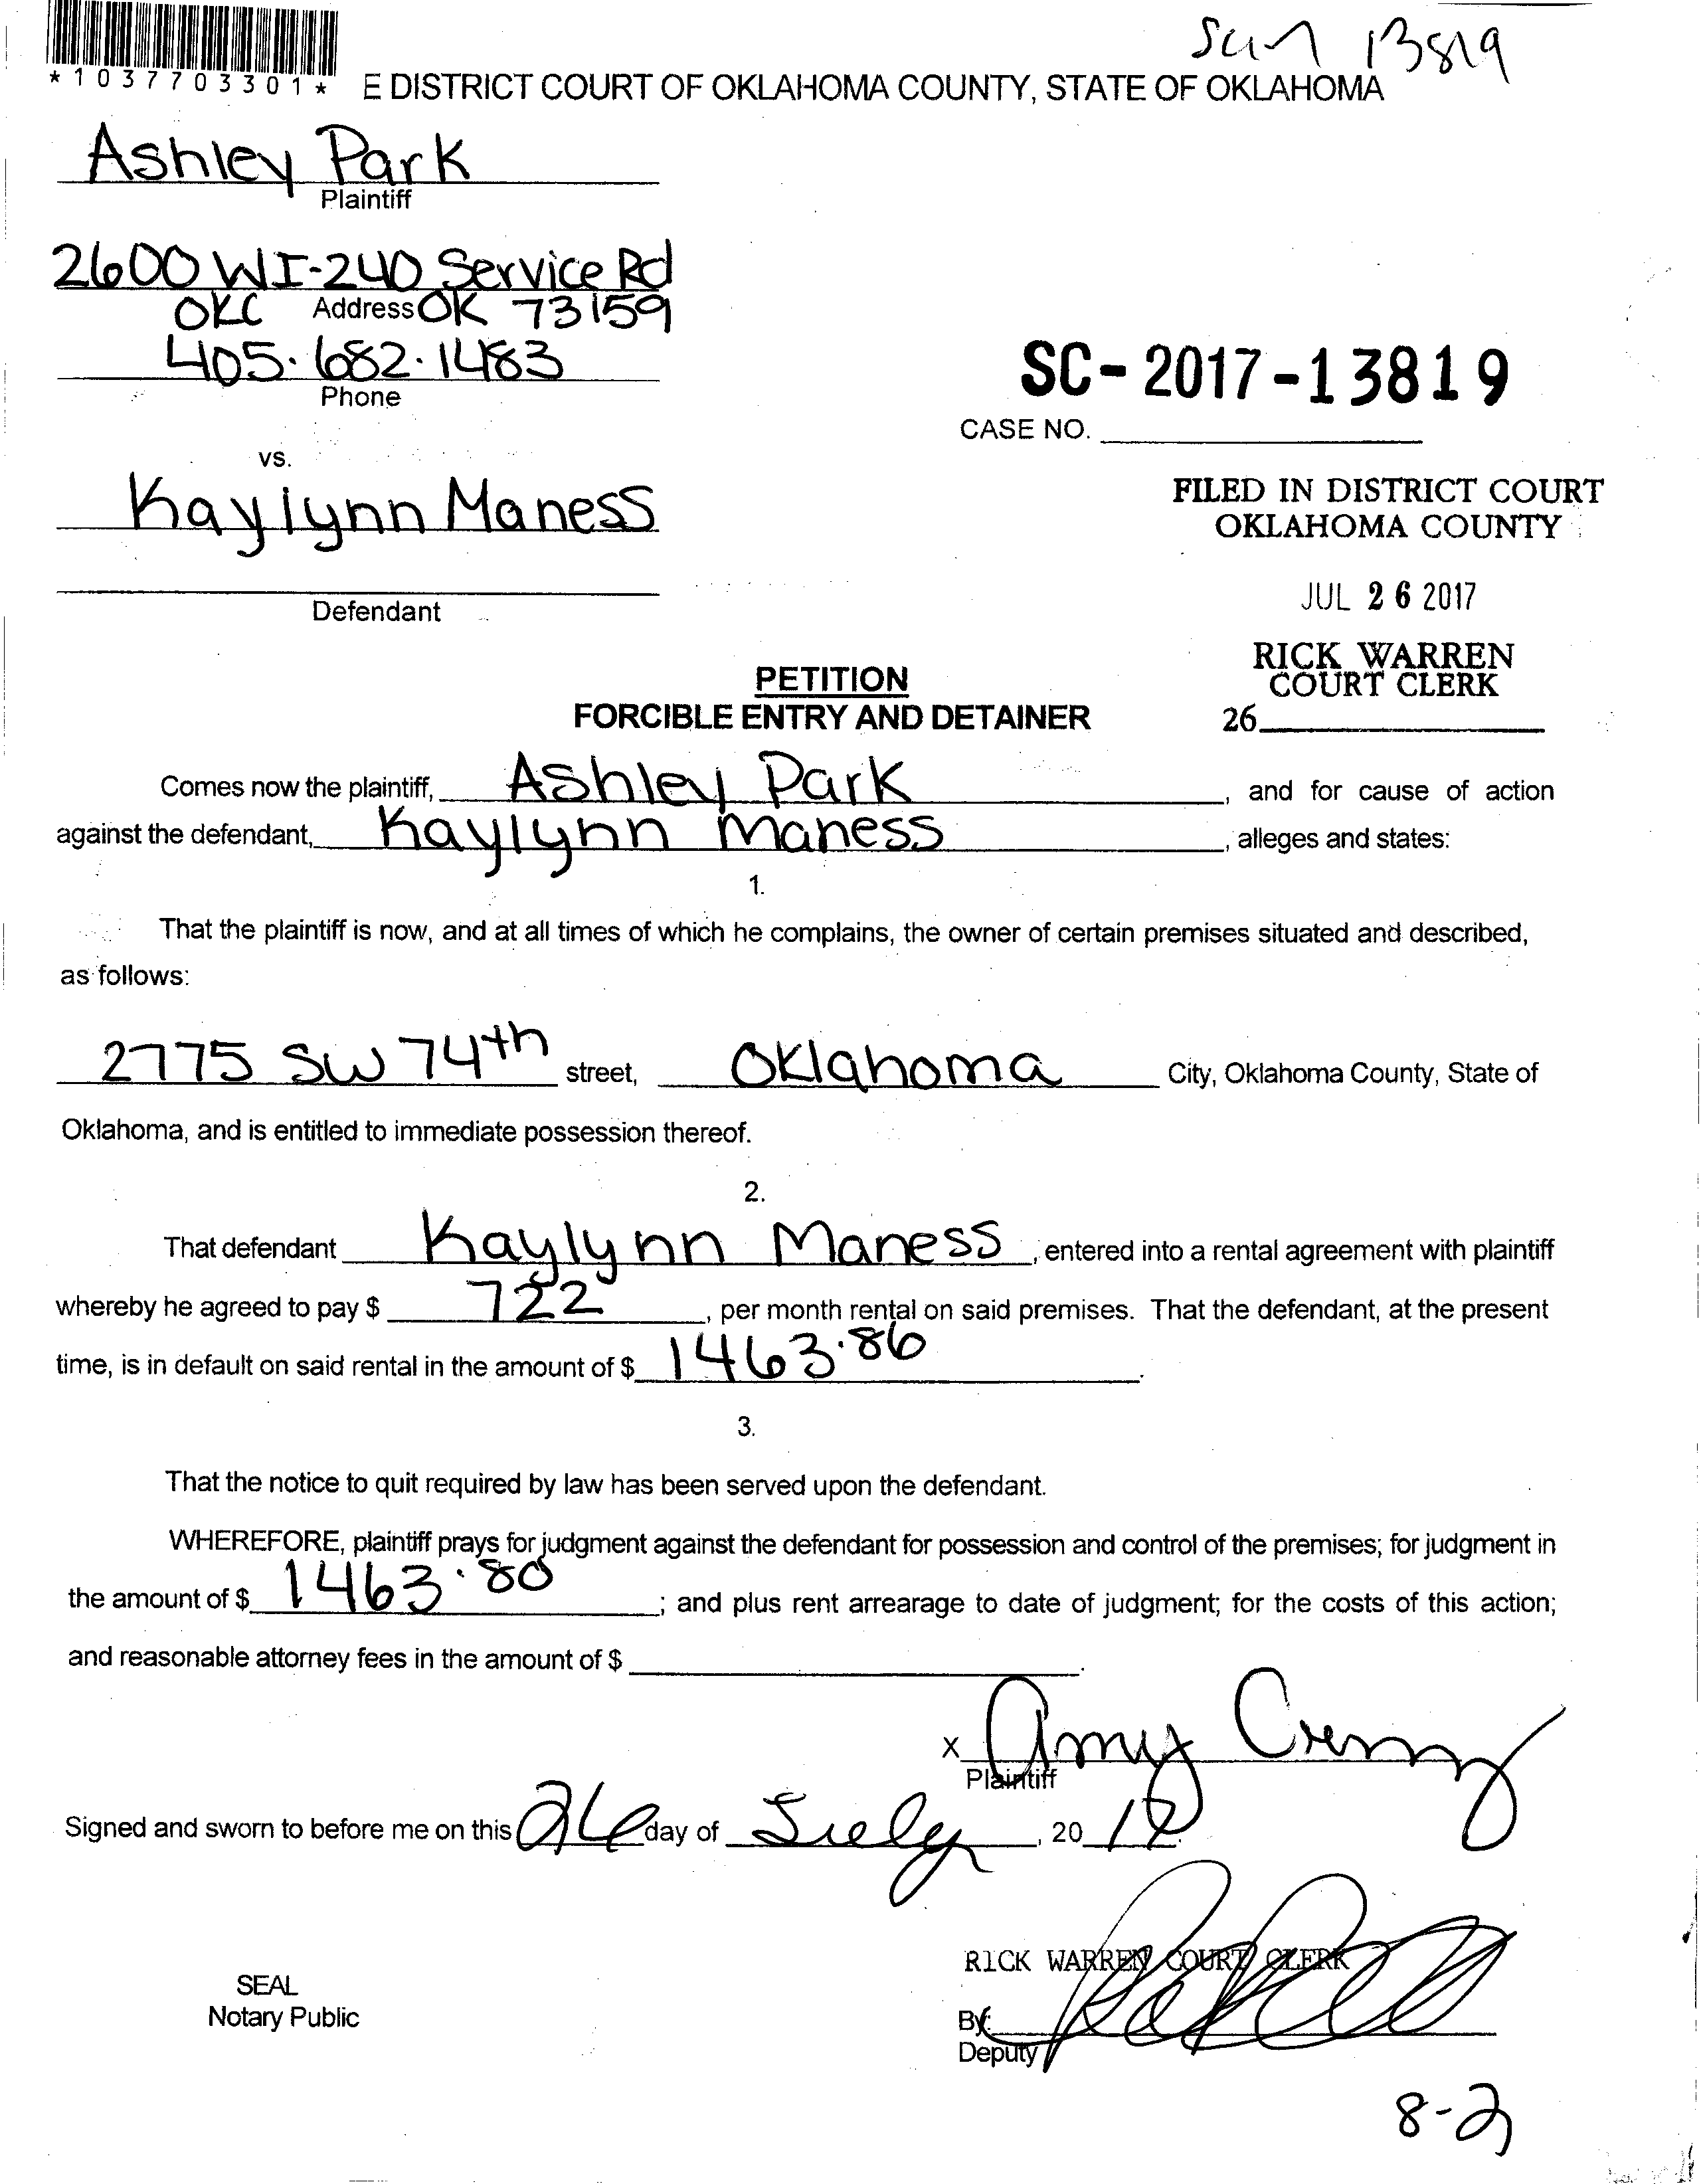 sun 13819
*1037703301* E DISTRICT COURT OF OKLAHOMA COUNTY, STATE OF OKLAHOMA
Ashley Park
Plaintiff
2600 W I-240 Service Rd
OKC Address OK 73159
405.682.1483
Phone
SC-2017-13819
CASE NO.
vs.
Kaylynn Maness
FILED IN DISTRICT COURT
OKLAHOMA COUNTY
Defendant
JUL 26 2017
RICK WARREN
COURT CLERK
26
PETITION
FORCIBLE ENTRY AND DETAINER
Comes now the plaintiff, Ashley Park, and for cause of action
against the defendant, Kaylynn Maness, alleges and states:
1.
That the plaintiff is now, and at all times of which he complains, the owner of certain premises situated and described,
as follows:
2775 SW 74th street, Oklahoma City, Oklahoma County, State of
Oklahoma, and is entitled to immediate possession thereof.
2.
That defendant Kaylynn Maness, entered into a rental agreement with plaintiff
whereby he agreed to pay $ 722, per month rental on said premises. That the defendant, at the present
time, is in default on said rental in the amount of $ 1463.86.
3.
That the notice to quit required by law has been served upon the defendant.
WHEREFORE, plaintiff prays for judgment against the defendant for possession and control of the premises; for judgment in
the amount of $ 1463.80; and plus rent arrearage to date of judgment; for the costs of this action;
and reasonable attorney fees in the amount of $ .
x Amy
Plaintiff
Signed and sworn to before me on this 26 day of July, 20 17.
RICK WARREN COURT CLERK
SEAL
Notary Public
By:
Deputy
8-2